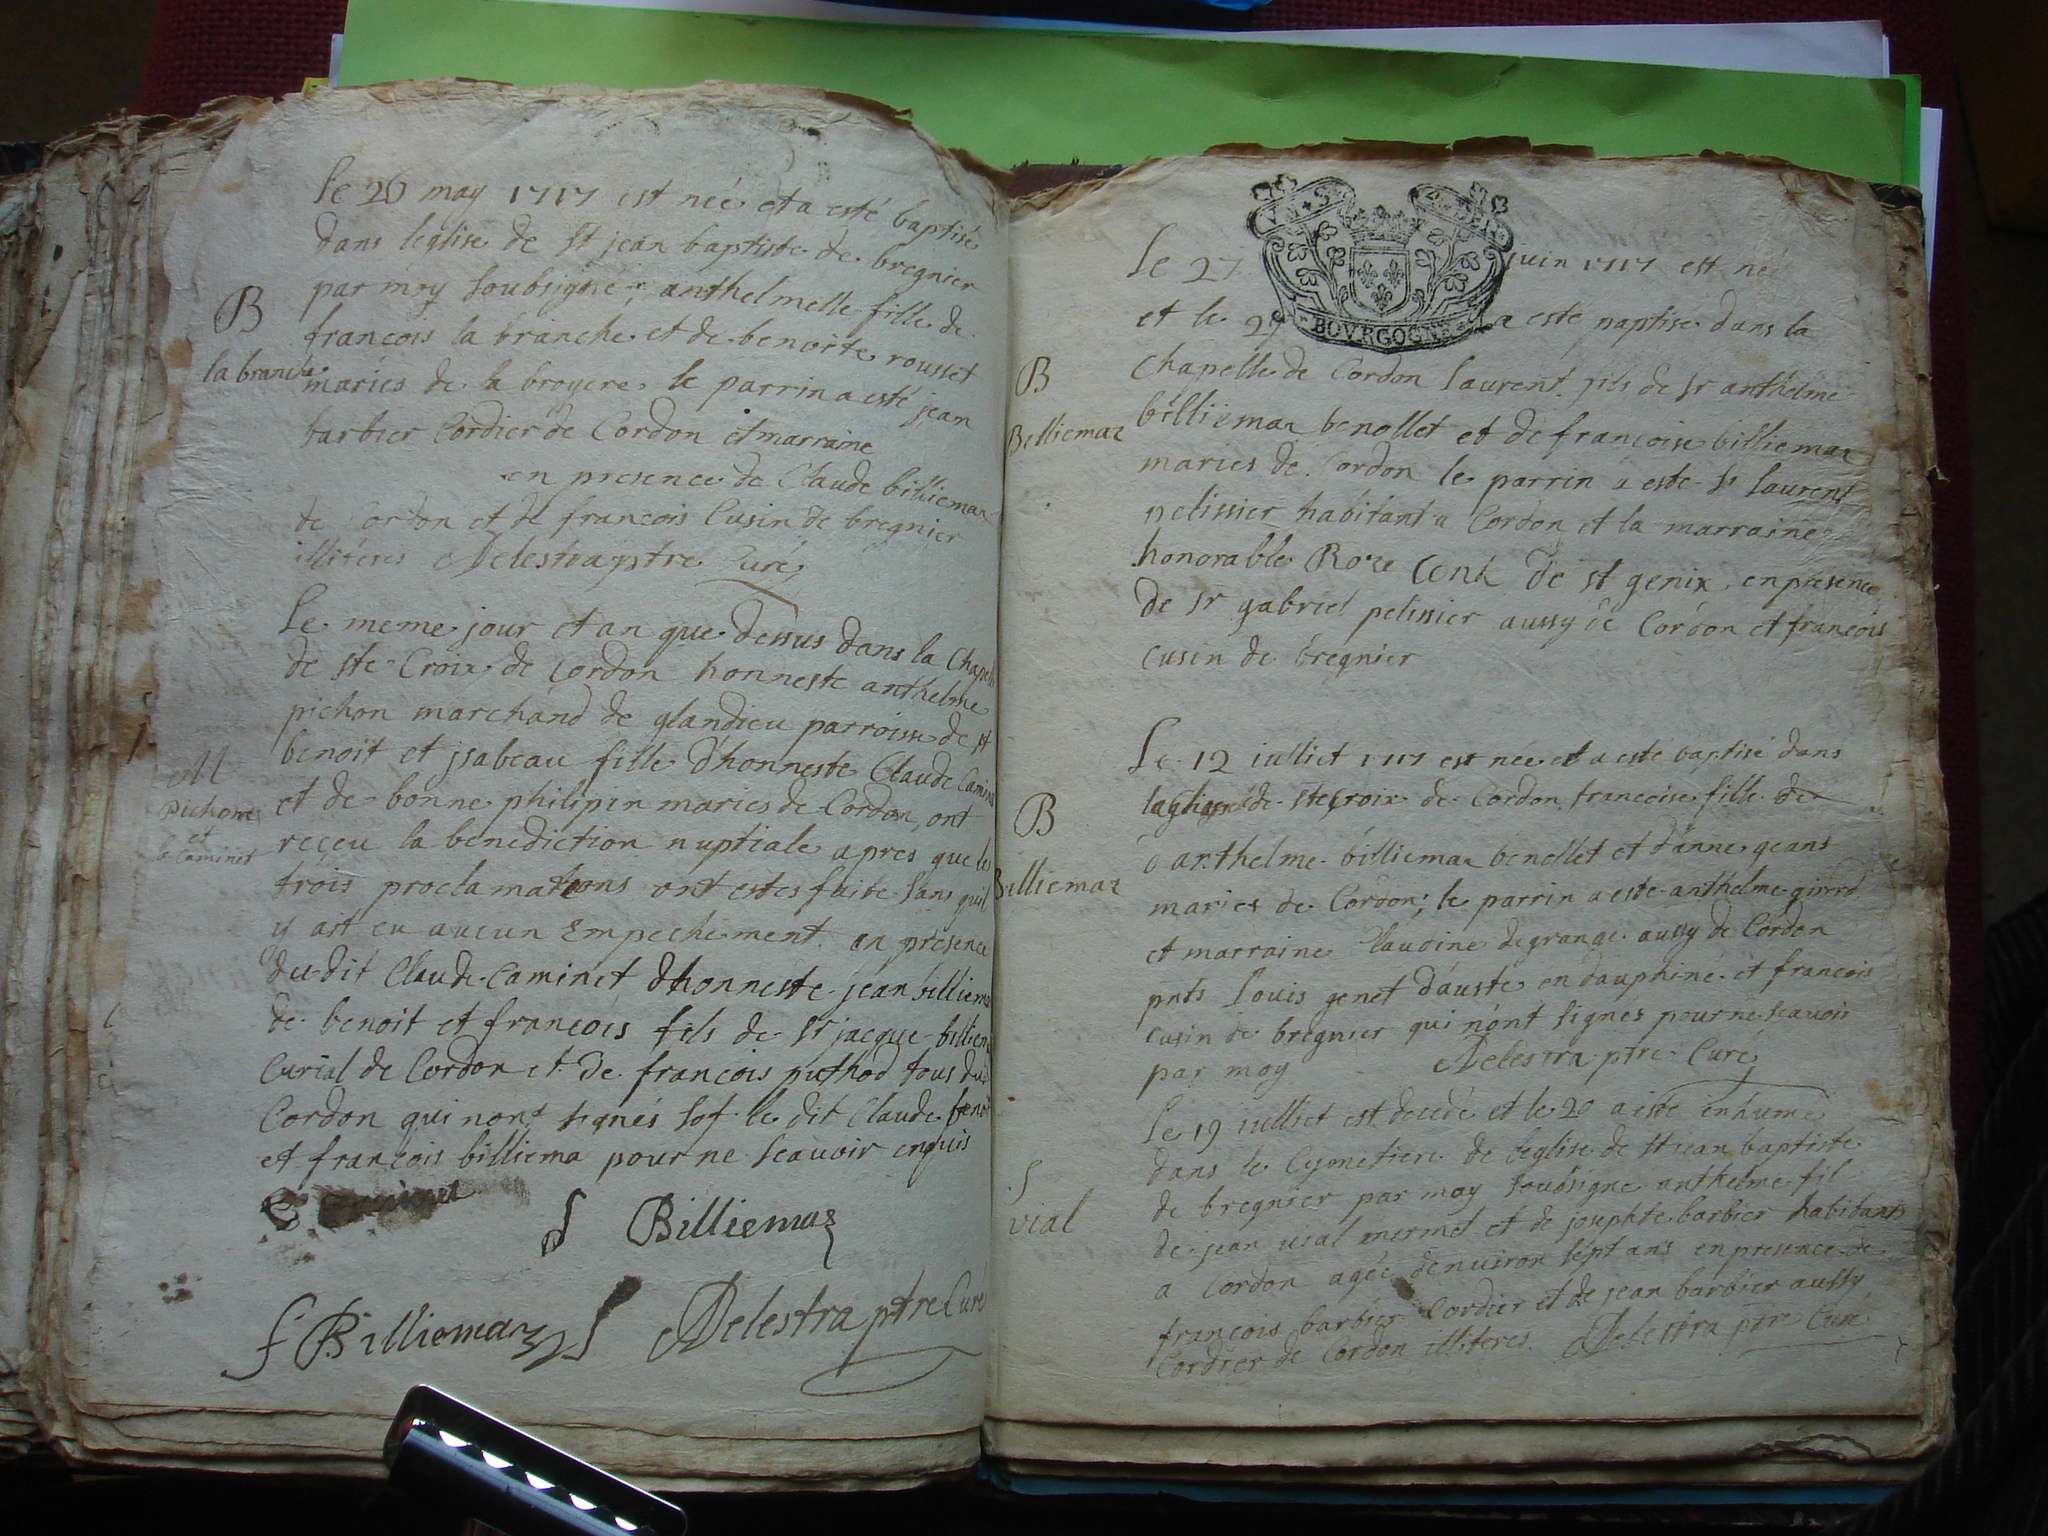 le 26 may 1717 est née et a esté baptisé
dans leglise de st jean baptiste de bregnier
par moy soubsigné anthelmelle fille de
francois la branche et de benoite rousset
maries de la broyere le parrin a esté jean
barbier Cordier de Cordon et marraine
en presence de Claude billiemaz
de Cordon et de francois Cusin de bregnier
illiteres Delestra ptre Curé
B
la branche
Le meme jour et an que dessus dans la Chapelle
de ste Croix de Cordon honneste anthelme
pichon marchand de glandieu parroisse de st
benoit et jsabeau fille d'honneste Claude Caminet
et de bonne philipin maries de Cordon, ont
reçeu la benediction nuptiale apres que les
trois proclamations ont estes faite sans quil
y ait eu aucun Empechement en présence
du dit Claude Caminet dhonneste jean billiema
de benoit et françois fils de sr jacque billiema
Curial de Cordon et de francois puthod tous du
Cordon qui nont signés sof le dit Claude benoit
et françois billiema pour ne scavoir enquis
M
Pichon
et
Caminet
Billiemaz
f Billiemaz
Delestra ptre Curé
BOVRGOGNE
Le 27 juin 1717 est né
et le 29 a esté baptise dans la
chapelle de Cordon laurent fils de sr anthelme
billiemaz benollet et de françoise billiemaz
maries de Cordon le parrin a este sr laurent
pelissier habitant a Cordon et la marraine
honorable Roze de st genix en presence
de sr gabriel pelissier aussy de Cordon et francois
cusin de bregnier
B
Billiemaz
Le 12 iulliet 1717 est née et a esté baptisé dans
de ste Croix de Cordon francoise fille de
anthelme billiemaz benellet et d'anne geans
maries de Cordon; le parrin a este anthelme girerd
et marraine Claudine degrange aussy de Cordon
pnts Louis genet d'auste en dauphiné et francois
cusin de bregnier qui n'ont signés pour ne scavoir
par moy Delestra ptre Curé
B
Billiemaz
Le 19 iulliet est decede et le 20 a esté enhumé
dans le Cymetiere de leglise de st jean baptiste
de bregnier par moy soubsigne anthelme fil
de jean vial mermet et de josephte barbier habitants
a Cordon agée denuiron sept ans en presence de
françois barbier Cordier et de jean barbier aussy
Cordier de Cordon illiteres Delestra ptre Curé
S
vial